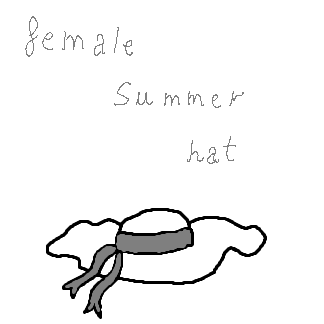 female
summer
hat